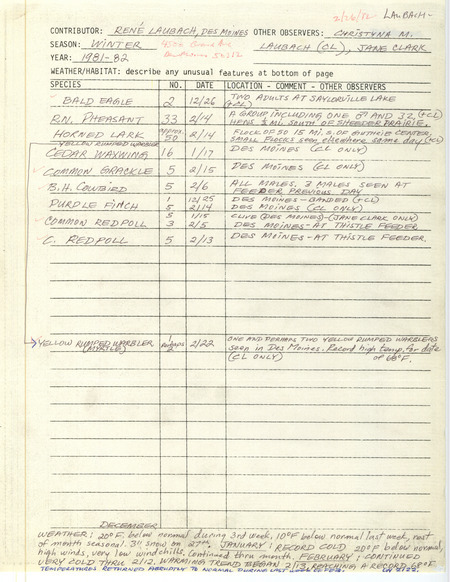 2/26/82 LAUBACH-
CONTRIBUTOR: RENÉ LAUBACH, DES MOINES OTHER OBSERVERS: CHRISTYNA M.
SEASON: WINTER LAUBACH (CL), JANE CLARK
YEAR: 1981-82
WEATHER/HABITAT: describe any unusual features at bottom of page
SPECIES NO. DATE LOCATION - COMMENT - OTHER OBSERVERS
BALD EAGLE 2 12/26 TWO ADULTS AT SAYLORVILLE LAKE (+CL)
R.N. PHEASANT 33 2/4 A GROUP INCLUDING ONE ♂ AND 32 (+CL)
HENS ½ MI. SOUTH OF SHEEDER PRAIRIE.
HORNED LARK approx. 50 2/14 FLOCK OF 50 15 MI. S. OF GUTHRIE CENTER,
SMALL FLOCKS seen elsewhere same day (+CL)
YELLOW RUMPED WARBLER
CEDAR WAXWING 16 1/17 DES MOINES (CL ONLY)
COMMON GRACKLE 5 2/15 DES MOINES (CL ONLY)
B.H. COWBIRD 5 2/6 ALL MALES. 3 MALES SEEN AT
FEEDER PREVIOUS DAY
PURPLE FINCH 1 12/25 DES MOINES - BANDED (+CL)
5 2/14 DES MOINES (CL ONLY)
5 1/15 CLIVE (DES MOINES)-(JANE CLARK ONLY)
COMMON REDPOLL 3 2/5 DES MOINES - AT THISTLE FEEDER
C. REDPOLL 5 2/13 DES MOINES - AT THISTLE FEEDER.
YELLOW RUMPED WARBLER (MYRTLE) 1 perhaps 2 2/22 ONE AND PERHAPS TWO YELLOW RUMPED WARBLERS
seen in Des Moines. Record high temp. for date
(CL ONLY) of 68°F.
DECEMBER
WEATHER: 20°F. below normal during 3rd week, 10°F below normal last week, rest
of month seasonal. 3" snow on JANUARY: RECORD COLD 20°F below normal,
high winds, very low windchills. Continued thru month. FEBRUARY: CONTINUED
VERY COLD THRU 2/12. WARMING TREND BEGAN 2/13, REACHING A RECORD 68°F.
TEMPERATURES RETURNED TO NORMAL DURING LAST ON 2/22.